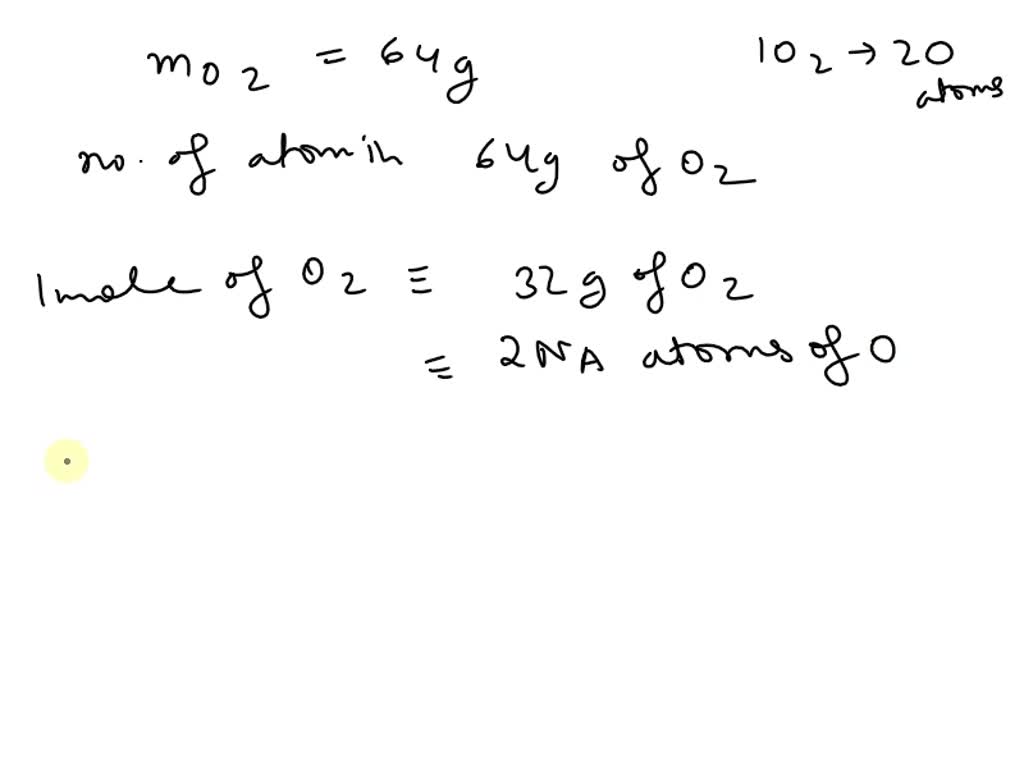 mO2 = 64g
1O2 → 2O
atoms
no. of atom in 64g of O2
1mole of O2 ≡ 32g of O2
≡ 2NA atoms of O